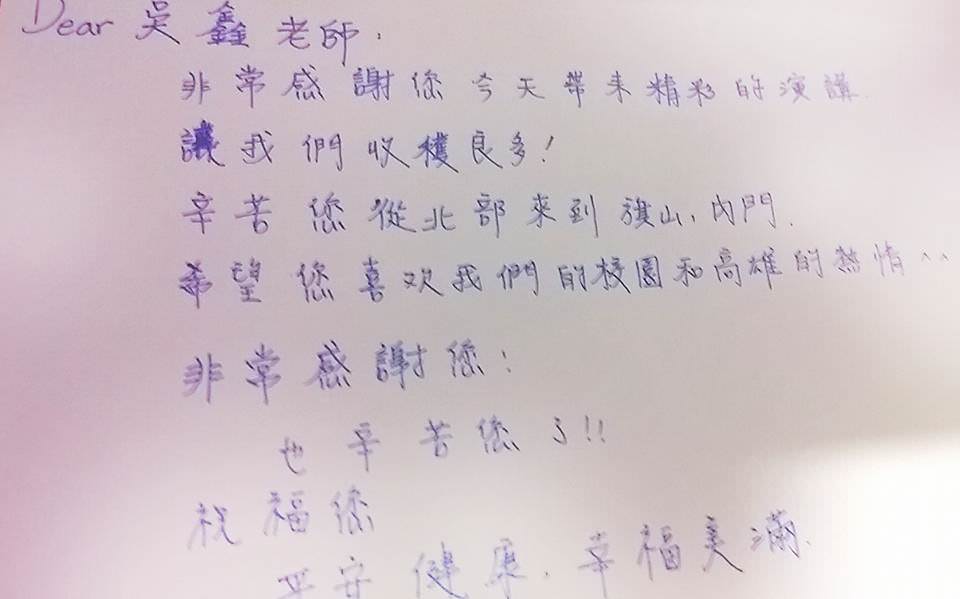 Dear 吳鑫老師：
非常感謝您今天帶來精彩的演講.
讓我們收穫良多!
辛苦您從北部來到旗山、內門.
希望您喜欢我們的校園和高雄的熱情^^
非常感謝您；
也辛苦您了!!
祝福您
平安健康、幸福美滿.